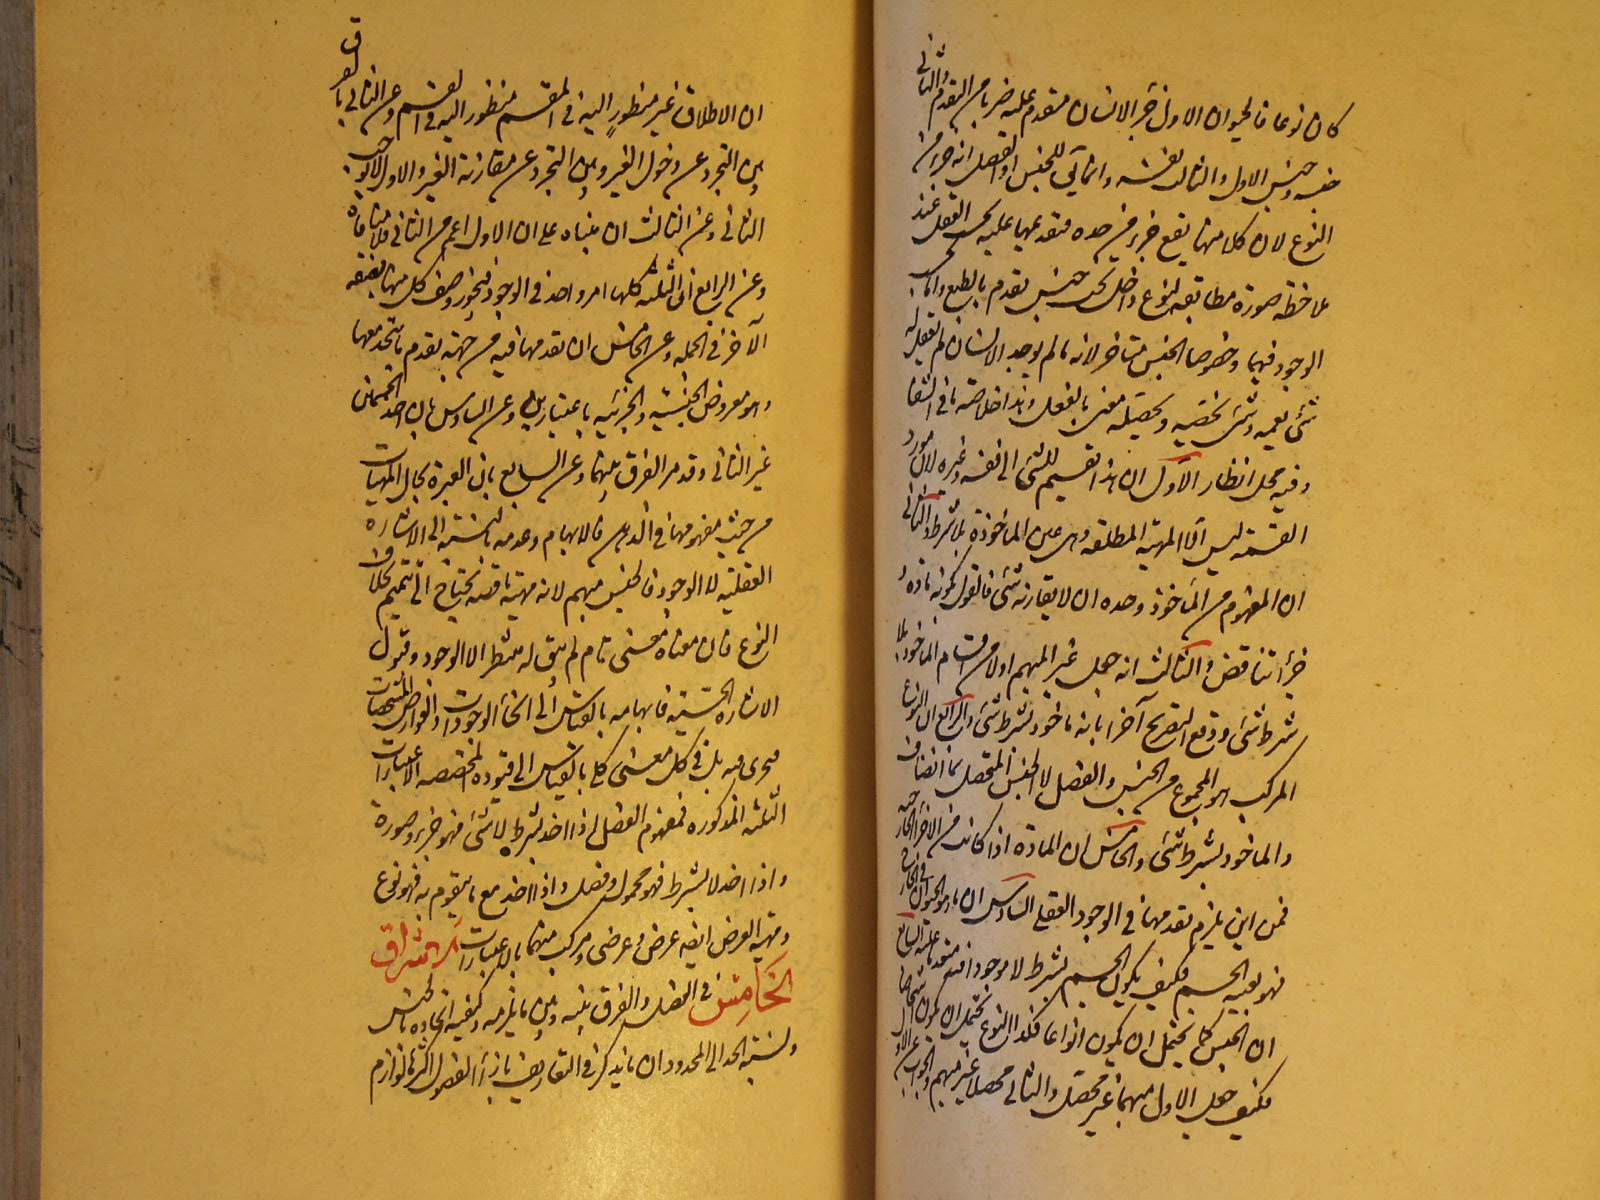 كان نوعا فالحيوان الاول جزء الانسان متقدم عليه ضربا من التقدم والثانى
جنسه وجنس الاول والثالث نفسه وانما يأتى للجنس او الفصل انه جزء من
النوع لان كلا منهما يقع جزء من حده فتقدمهما عليه بحسب العقل عند
ملاحظة صورة مطابقة لنوع داخل تحت جنس تقدم بالطبع واما بحسب
الوجود فيهما وخصوصا الجنس متاخر لانه ما لم يوجد الانسان لم يعقل له
شئ يعمه وشئ يخصه ويحصله معنى بالفعل وهذا خلاصة ما فى الشفا
وفيه محل انظار الاول ان هذا تقسيم للشئ الى نفسه وغيره لان مورد
القسمة ليس الا المهية المطلقة وهى عين الماخوذة بلا شرط والثانى
ان المفهوم من الماخوذ وحده ان لا يقارنه شئ فالقول بكونه مادة و
جزءا تناقض والثالث انه جعل غير المبهم اولا من اقسام الماخوذ بلا
شرط شئ ووقع التصريح آخرا بانه ماخوذ بشرط شئ والرابع ان النوع
المركب هو المجموع من الجنس والفصل لا الجنس المتحصل بما انضاف
والماخوذ بشرط شئ والخامس ان المادة اذا كانت من الاجزاء الخارجية
فمن اين يلزم تقدمها فى الوجود العقلى السادس ان ما هو الحيوان فى الخارج
فهو بعينه الجسم فكيف يكون الجسم بشرط لا موجودا فيه متقدما عليه السابع
ان الجنس كما يحتمل ان يكون انواعا فكذا النوع يحتمل ان يكون اشخاصا
فكيف جعل الاول مبهما غير محصل والثانى محصلا غير مبهم والجواب عن الاول
ان الاطلاق غير منظور اليه فى المقسم منظور اليه فى القسم وعن الثانى بالفرق
بين التجرد عن دخول الغير وبين التجرد عن مقارنة الغير والاول لا يوجب
الثانى وعن الثالث ان مبناه على ان الاول اعم من الثانى فلا منافاة
وعن الرابع ان الثلثة كلها امر واحد فى الوجود فيجوز وصف كل منها بصفة
الآخر فى الجملة وعن الخامس ان تقدمها فيه من جهة تقدم ما يتحد معها
وهو معروض الجنسية والجزئية باعتبارين وعن السادس بان احد الجسمين
غير الثانى وقد مر الفرق بينهما وعن السابع بان العبرة بحال المهيات
من حيث مفهومها فى الذهن فالابهام وعدمه بالنسبة الى الاشارة
العقلية لا الوجود فالجنس مبهم لانه مهية ناقصة يحتاج الى تتميم بخلاف
النوع فان معناه معنى تام لم يبق له منتظر الا الوجود وقبول
الاشارة الحسية فابهامه بالقياس الى انحاء الوجودات والعوارض المشخصات
مجرى فيه بل فى كل معنى كلى بالقياس الى قيوده المخصصة الاعتبارات
الثلثة المذكورة فمفهوم الفصل اذا اخذ بشرط لا شئ فهو جزء وصورة
واذا اخذ لا بشرط فهو محمول وفصل واذا اخذ مع ما يتقوم به فهو نوع
ومهية العرض ايضا عرض وعرضى ومركب منهما بالاعتبارات الاشراق
الخامس فى الفصل والفرق بينه وبين ما يلزمه وكيفية اتحاده بالجنس
ونسبة الحد الى المحدود ان ما يذكر فى التعاريف بازاء الفصول اكثرها لوازم